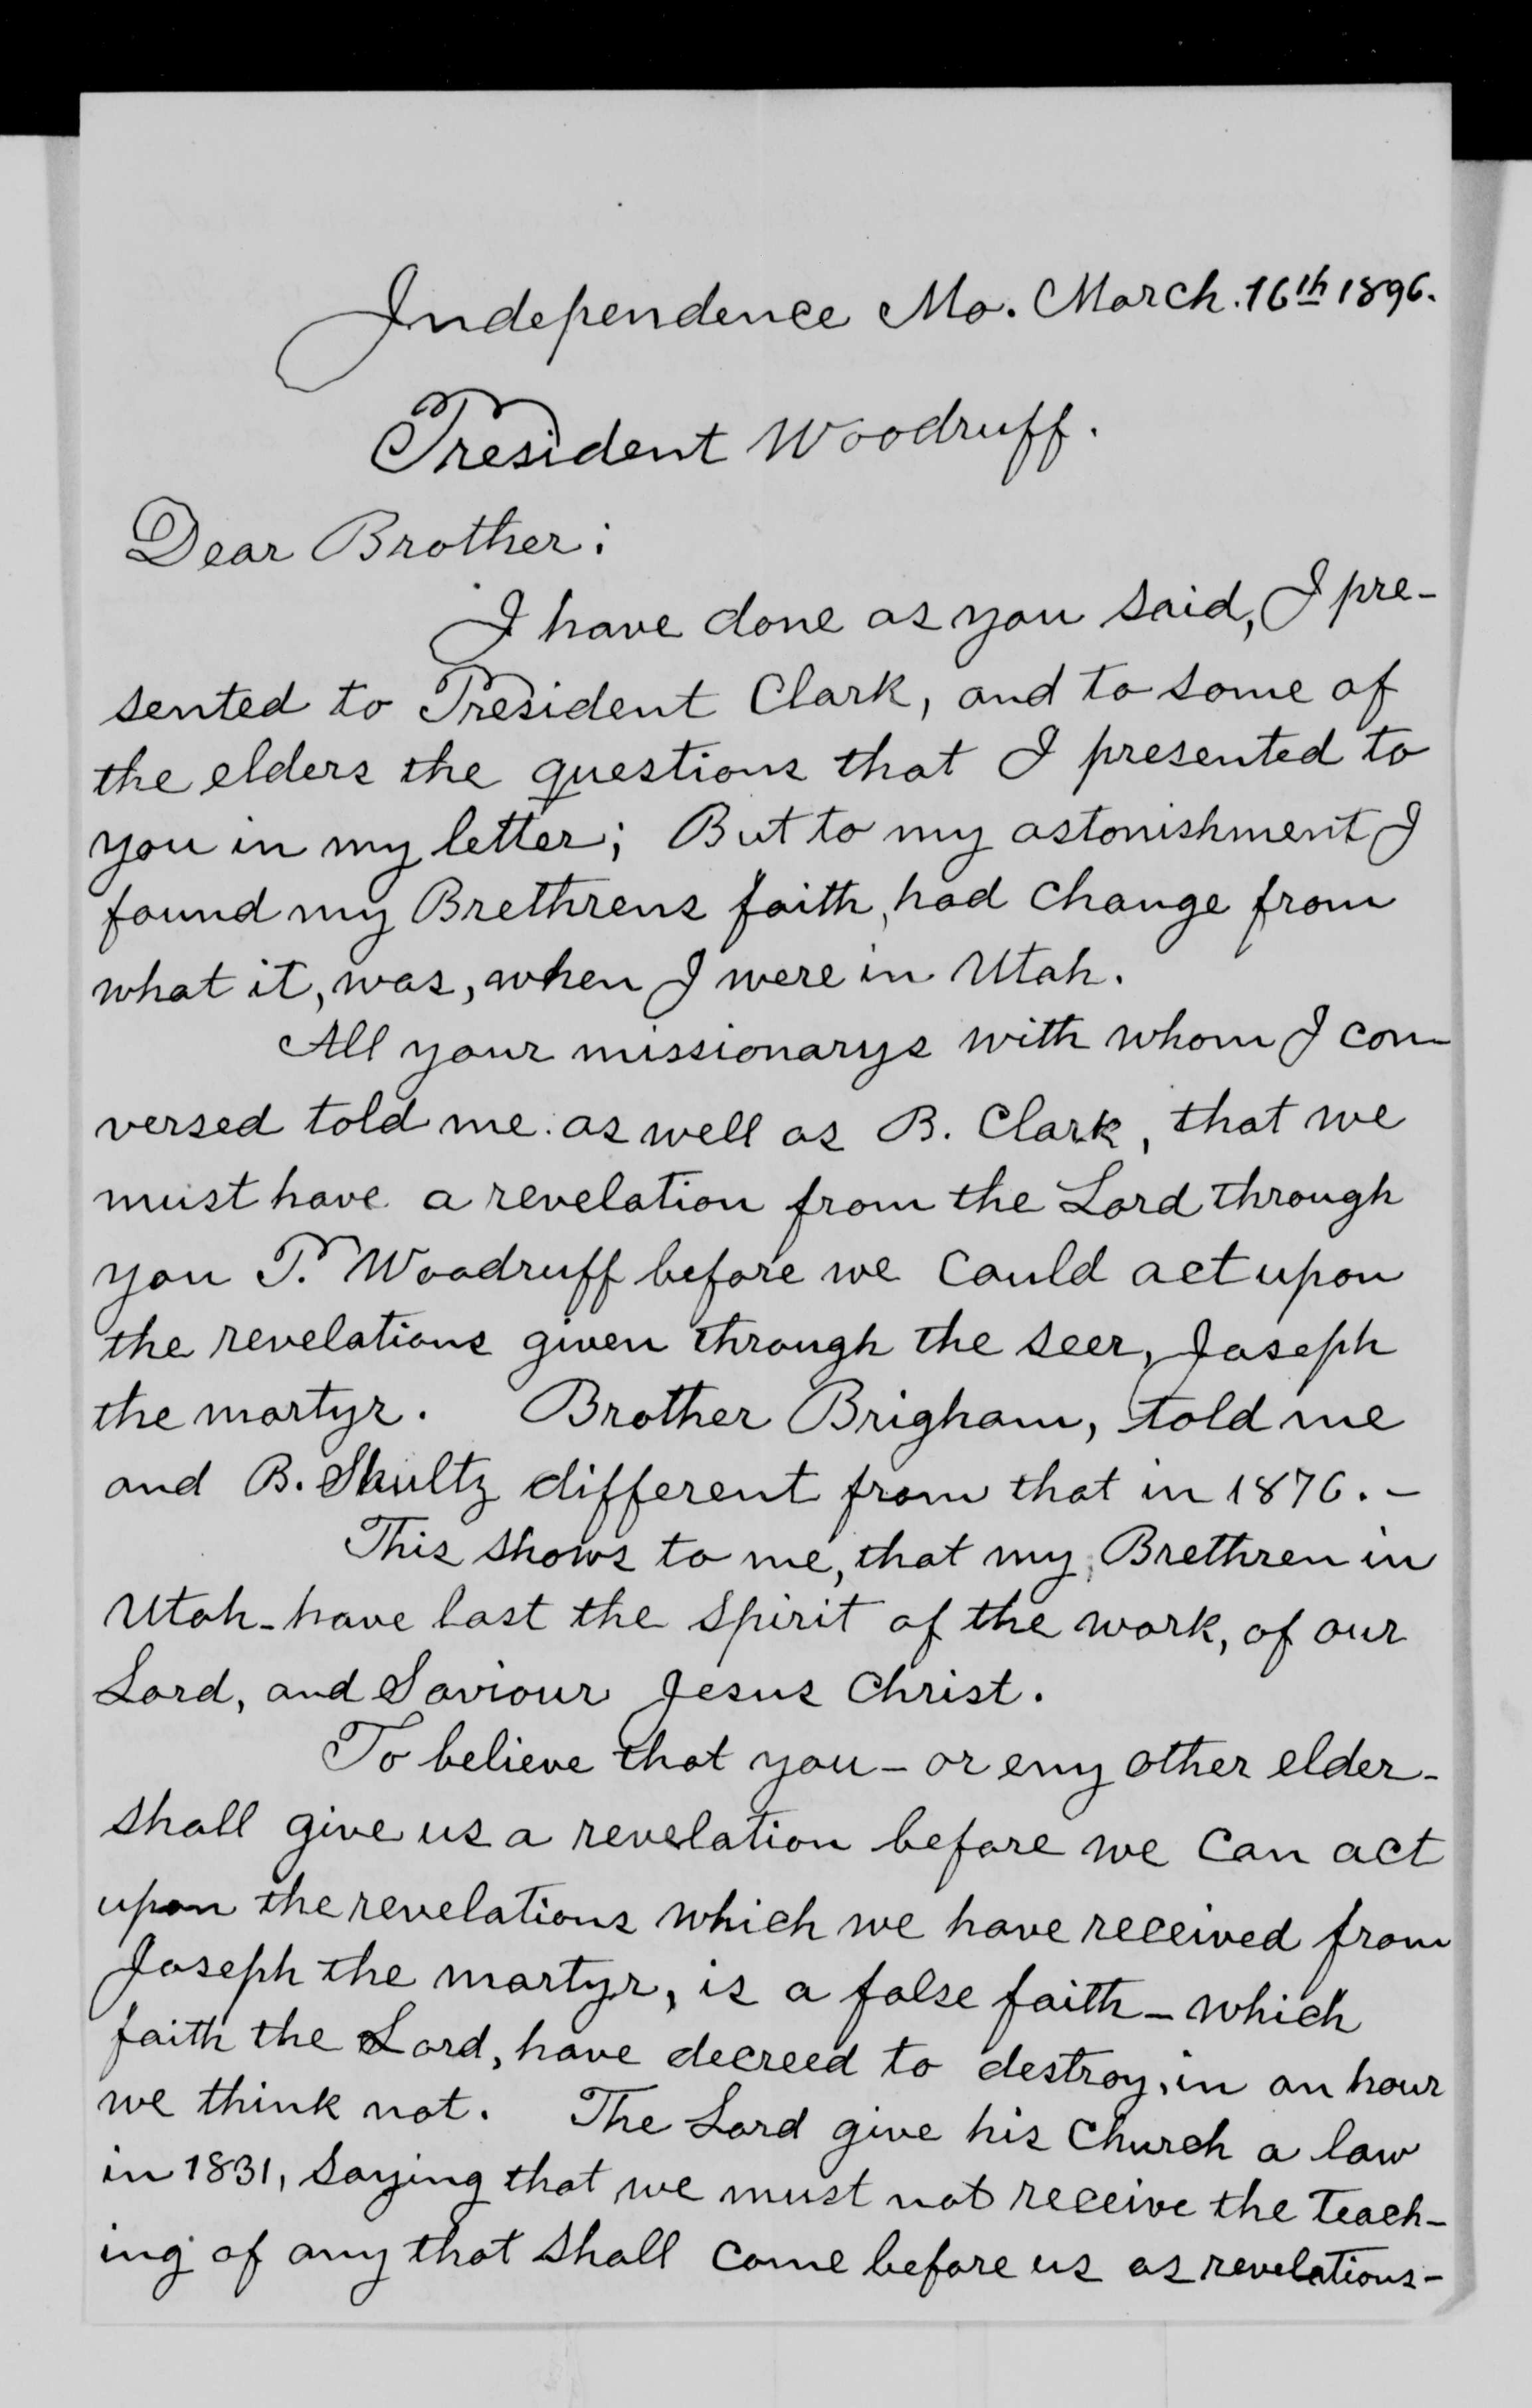 Independence Mo. March. 16th 1896.
President Woodruff.
Dear Brother:
I have done as you said, I pre-
sented to President Clark, and to some of
the elders the questions that I presented to
you in my letter; But to my astonishment I
found my Brethrens faith, had change from
what it, was, when I were in Utah.
All your missionarys with whom I con-
versed told me as well as B. Clark, that we
must have a revelation from the Lord through
you P. Woodruff before we could act upon
the revelations given through the seer, Joseph
the martyr. Brother Brigham, told me
and B. Shultz different from that in 1876. -
This shows to me, that my Brethren in
Utah - have lost the spirit of the work, of our
Lord, and Saviour Jesus Christ.
To believe that you - or eny other elder -
shall give us a revelation before we can act
upon the revelations which we have received from
Joseph the martyr, is a false faith - which
faith the Lord, have decreed to destroy, in an hour
we think not. The Lord give his Church a law
in 1831, saying that we must not receive the teach-
ing of any that shall come before us as revelations -